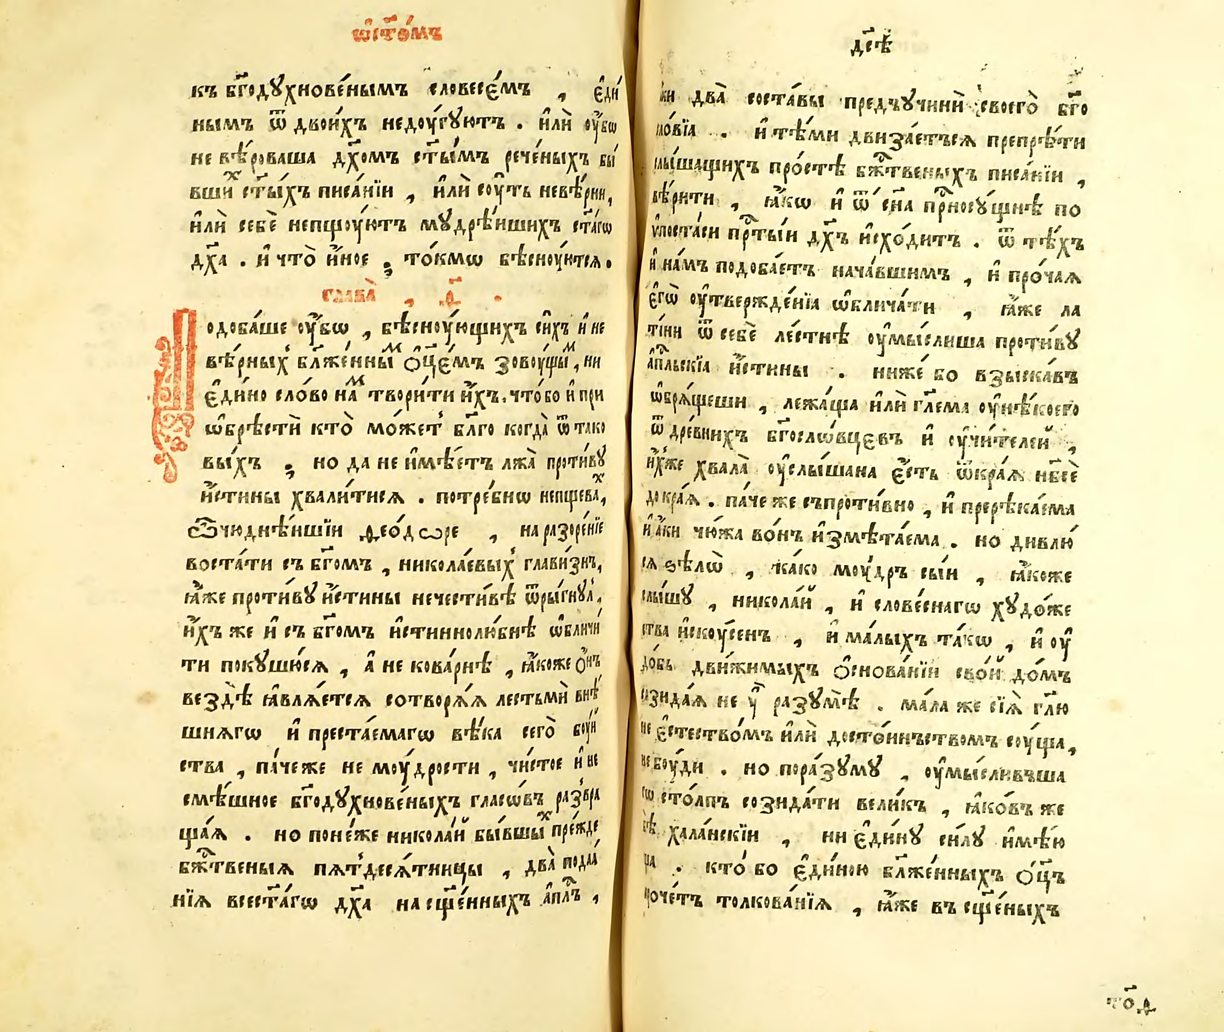 ѡ҆ст҃о́мъ
къ бг҃одꙋхнове́нымъ словесє́мъ , є҆ди́
нымъ ѿ двои́хъ недоу́гꙋютъ . и҆лѝ оу҆́бѡ
не вѣ́роваша дх҃омъ ст҃ы́мъ рече́ныхъ бы́
вших ст҃ы́хъ писа́нїи , и҆лѝ сꙋ́ть невѣ́рни,
и҆лѝ себѐ непщꙋ́ютъ мꙋдрѣ́ишихъ ст҃а́гѡ
дх҃а . и҆ что̀ и҆́ное , то́кмѡ бѣснꙋ́ится .
глава̀ , д҃ .
Подоба́ше оу҆́бѡ , бѣснꙋ́ющихъ си́хъ и҆ не
вѣ́рных блаже́нным ѻ҆ц҃є́мъ зовꙋ́щым , ни
є҆ди́но сло́во нам твори́ти и҆́хъ . что́ бо и҆ при
ѡ҆брѣстѝ кто̀ мо́жет бл҃го когда̀ ѿ тако
вы́хъ , но да не и҆мѣ́етъ лжа̀ проти́вꙋ
и҆́стины хвали́тися . потре́бнѡ непщева́х,
ѽ чюднѣ́ишїи ѳео́дѡре , на разоре́нїе
воста́ти съ бг҃омъ , никола́евых глави́знъ,
ꙗ҆́же проти́вꙋ и҆́стины нечести́вѣ ѿры́гнꙋл .
и҆́хъ же и҆ съ бг҃омъ и҆стиннолю́бнѣ ѡ҆бличи́
ти покꙋшю́ся , а҆ не кова́рнѣ , ꙗ҆́коже ѻ҆́нъ
вездѣ̀ ꙗ҆вля́ется сотворя́я лестьмѝ внѣ́
шнягѡ и҆ преста́емагѡ вѣ́ка сего̀ бꙋ́й
ства , па́че же не мꙋ́дрости , чи́стое и҆ не
смѣ́шное бг҃одꙋхнове́ныхъ гласѡ́въ развра
ща́я . но поне́же никола́й бы́вшых пре́жде
бж҃твеныя пятдеся́тницы , два̀ подаѧ́
нїя всест҃а́гѡ дх҃а на сщ҃е́нныхъ а҆пл҃ъ ,
дс҃ѣ
ки два̀ соста́вы предъꙋчинѝ своего̀ бг҃о
сло́вїа . и҆ тѣ́ми дви́зається препрѣ́ти
слы́шащихъ про́стѣ бж҃твеныхъ писа́нїи ,
вѣ́рити , ꙗ҆́кѡ и҆ ѿ сн҃а присносꙋ́щнѣ по
ѵ҆поста́си прт҃ы́и дх҃ъ и҆схо́дитъ . ѿ тѣ́хъ
и҆ на́мъ подоба́етъ нача́вшимъ , и҆ про́чая
є҆гѡ̀ оу҆твержде́нїа ѡ҆блича́ти , ꙗ҆́же ла
ти́ни ѿ себѐ ле́стнѣ оу҆мы́слиша проти́вꙋ
а҆пл҃ьскїа и҆́стины . ниже́ бо взыска́въ
ѡ҆бря́щеши , лежа́ща и҆лѝ гл҃ема оу҆ нѣ́коего
ѿ дре́внихъ бг҃осло́вцєвъ и҆ оу҆чи́телей ,
и҆́хже хвала̀ оу҆слы́шана є҆́сть ѿ кра́я нб҃сѐ
до кра́я . па́че же съпроти́вно , и҆ прерѣка́ема
и҆ а҆́ки чю́жа во́нъ и҆змѣта́ема . но дивлю́
ся ѕѣлѡ̀ , ка́ко мꙋ́дръ сы́и , ꙗ҆́коже
слы́шꙋ , никола́й , и҆ слове́снагѡ хꙋдо́же
ства и҆скꙋ́сенъ , и҆ ма́лыхъ та́кѡ , и҆ оу҆
до́бь дви́жимыхъ ѻ҆снова́нїи сво́й до́мъ
сози́дая не ѵ҆ разꙋ́мѣ . ма́ла же сїѧ̀ гл҃ю
не є҆стество́мъ и҆лѝ досто́инъствомъ сꙋ́ща,
не бꙋ́ди . но по ра́зꙋмꙋ , оу҆мы́сливъша
сѡ сто́лпъ созида́ти вели́къ , ꙗ҆ко́въ же
бѣ̀ хала́нскїи , ни є҆ди́нꙋ си́лꙋ и҆мѣ́ю
ща . кто́ бо є҆ди́ною блаже́нныхъ ѻ҆ц҃ъ
почє́тъ толкова́нїя , ꙗ҆́же въ сщ҃е́ныхъ